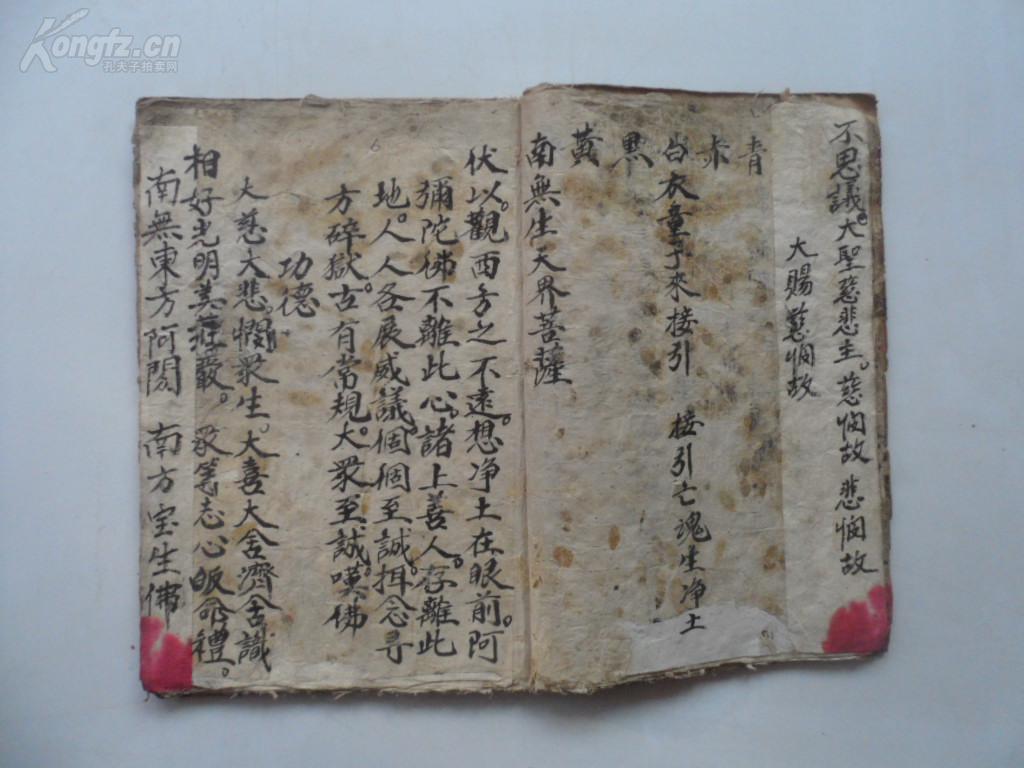 不思議。大聖慈悲主。慈憫故 悲憫故
大賜慈憫故
青 赤 白 黑 黃
衣童子來接引 接引亡魂生净土
南無生天界菩薩
伏以。觀西方之不遠。想净土在眼前。阿
彌陀佛不離此心。諸上善人。存離此
地。人人各展威議個個至誠。揖念寻
方碎獄。古有常規。大衆至誠。嘆佛
功德
大慈大悲。憫衆生。大喜大舍濟含識
相好光明美莊嚴。衆等志心皈命禮。
南無東方阿閦 南方宝生佛
Kongfz.cn
孔夫子拍卖网